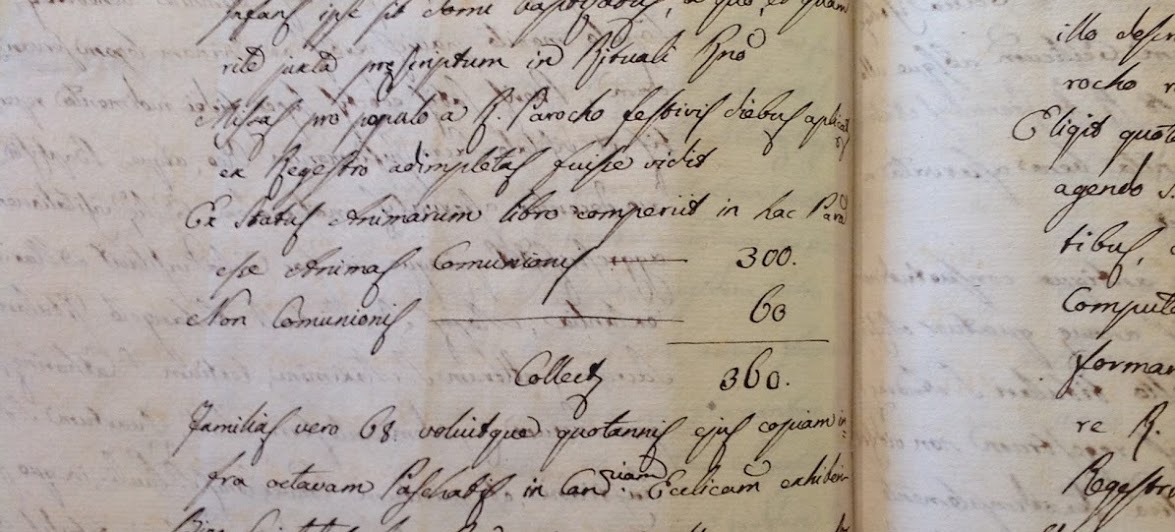 Infans ipse sit domi baptizatus, a quo, et quam
rite juxta prescriptum in Rituali Rno
Missas pro populo a R. Parocho festivis diebus aplicat
ex Regestro adimpletas fuisse vidit
Ex Status Animarum libro comperiit in hac Para
esse Animas Comunionis 300.
Non Comunionis 60
Collect 360.
Familias vero 68 voluitque quotannis ejus copiam in
fra octavam Paschatis in Can Ecclicam exhiberi
illo
rocho
Eligit
agendo
tibus,
Comput
forman
re R.
Regestr